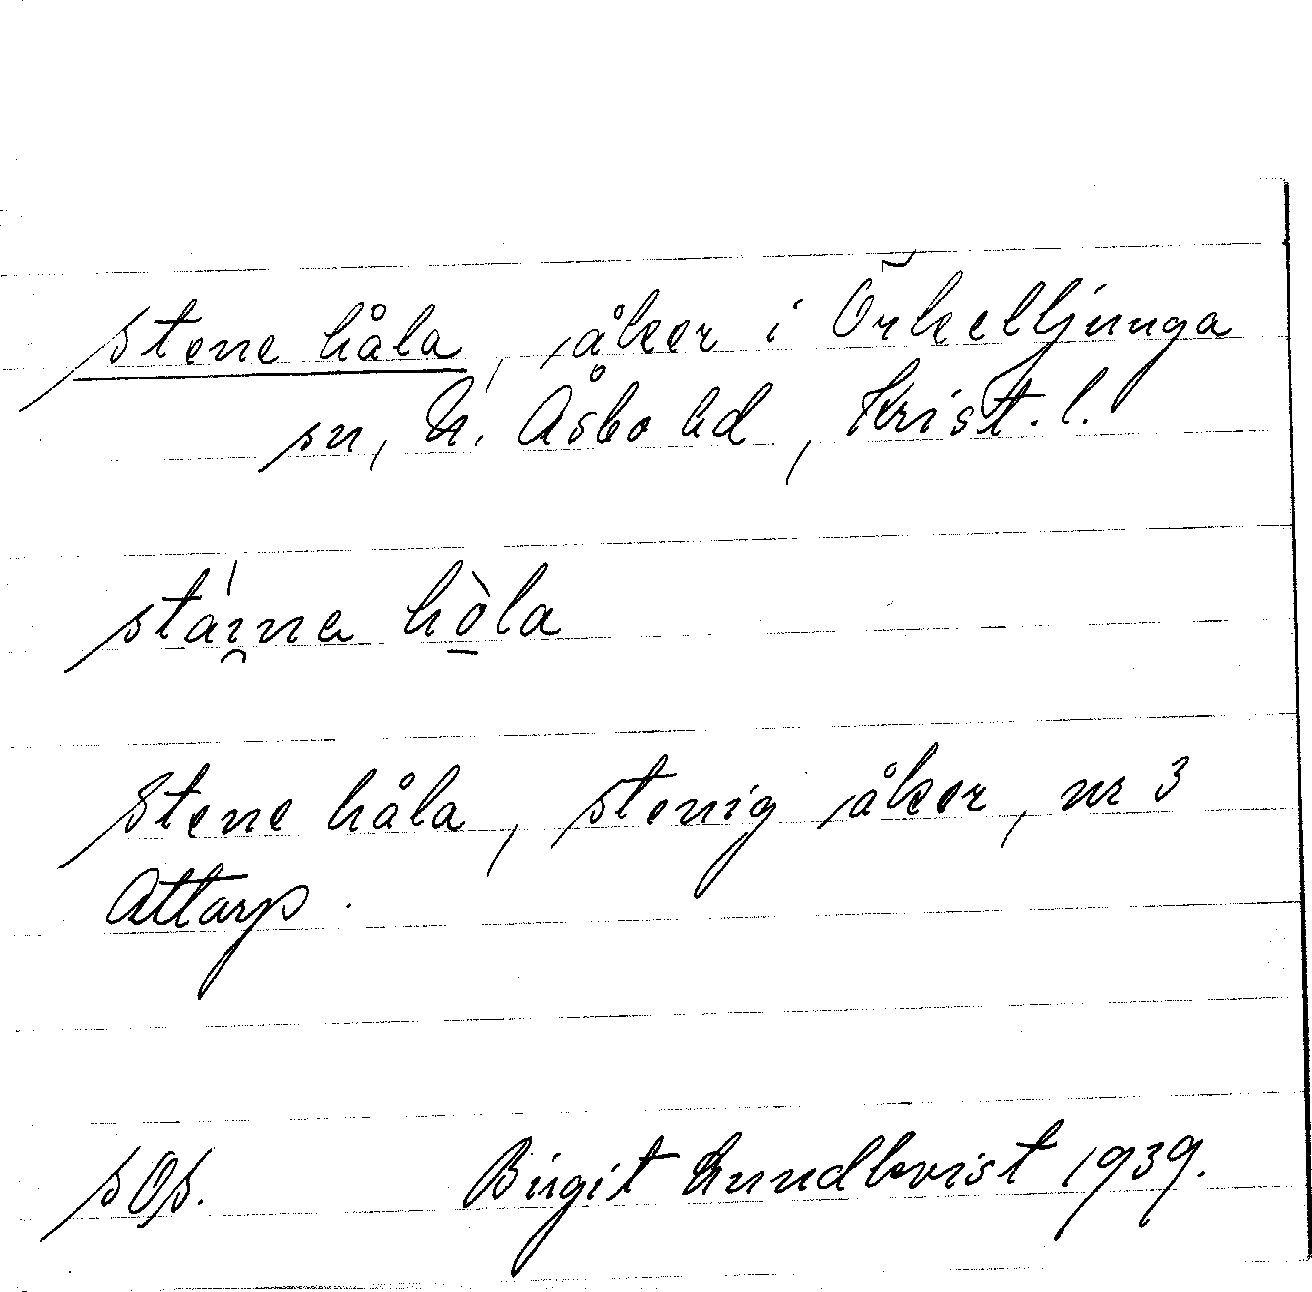 stene håla, åker i Örkelljunga
sn, N. Åsbo hd, Krist. l.
stáına hòla
Stene håla, stenig åker, nr 3
Attarp.
sOs. Birgit Lundkvist 1939.